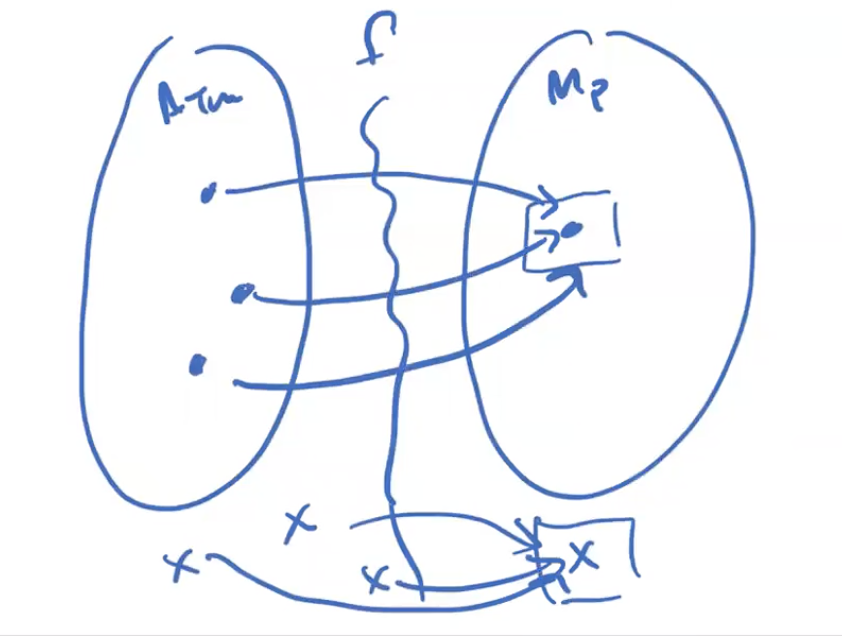 f
ATM
MP
X
X
X
X